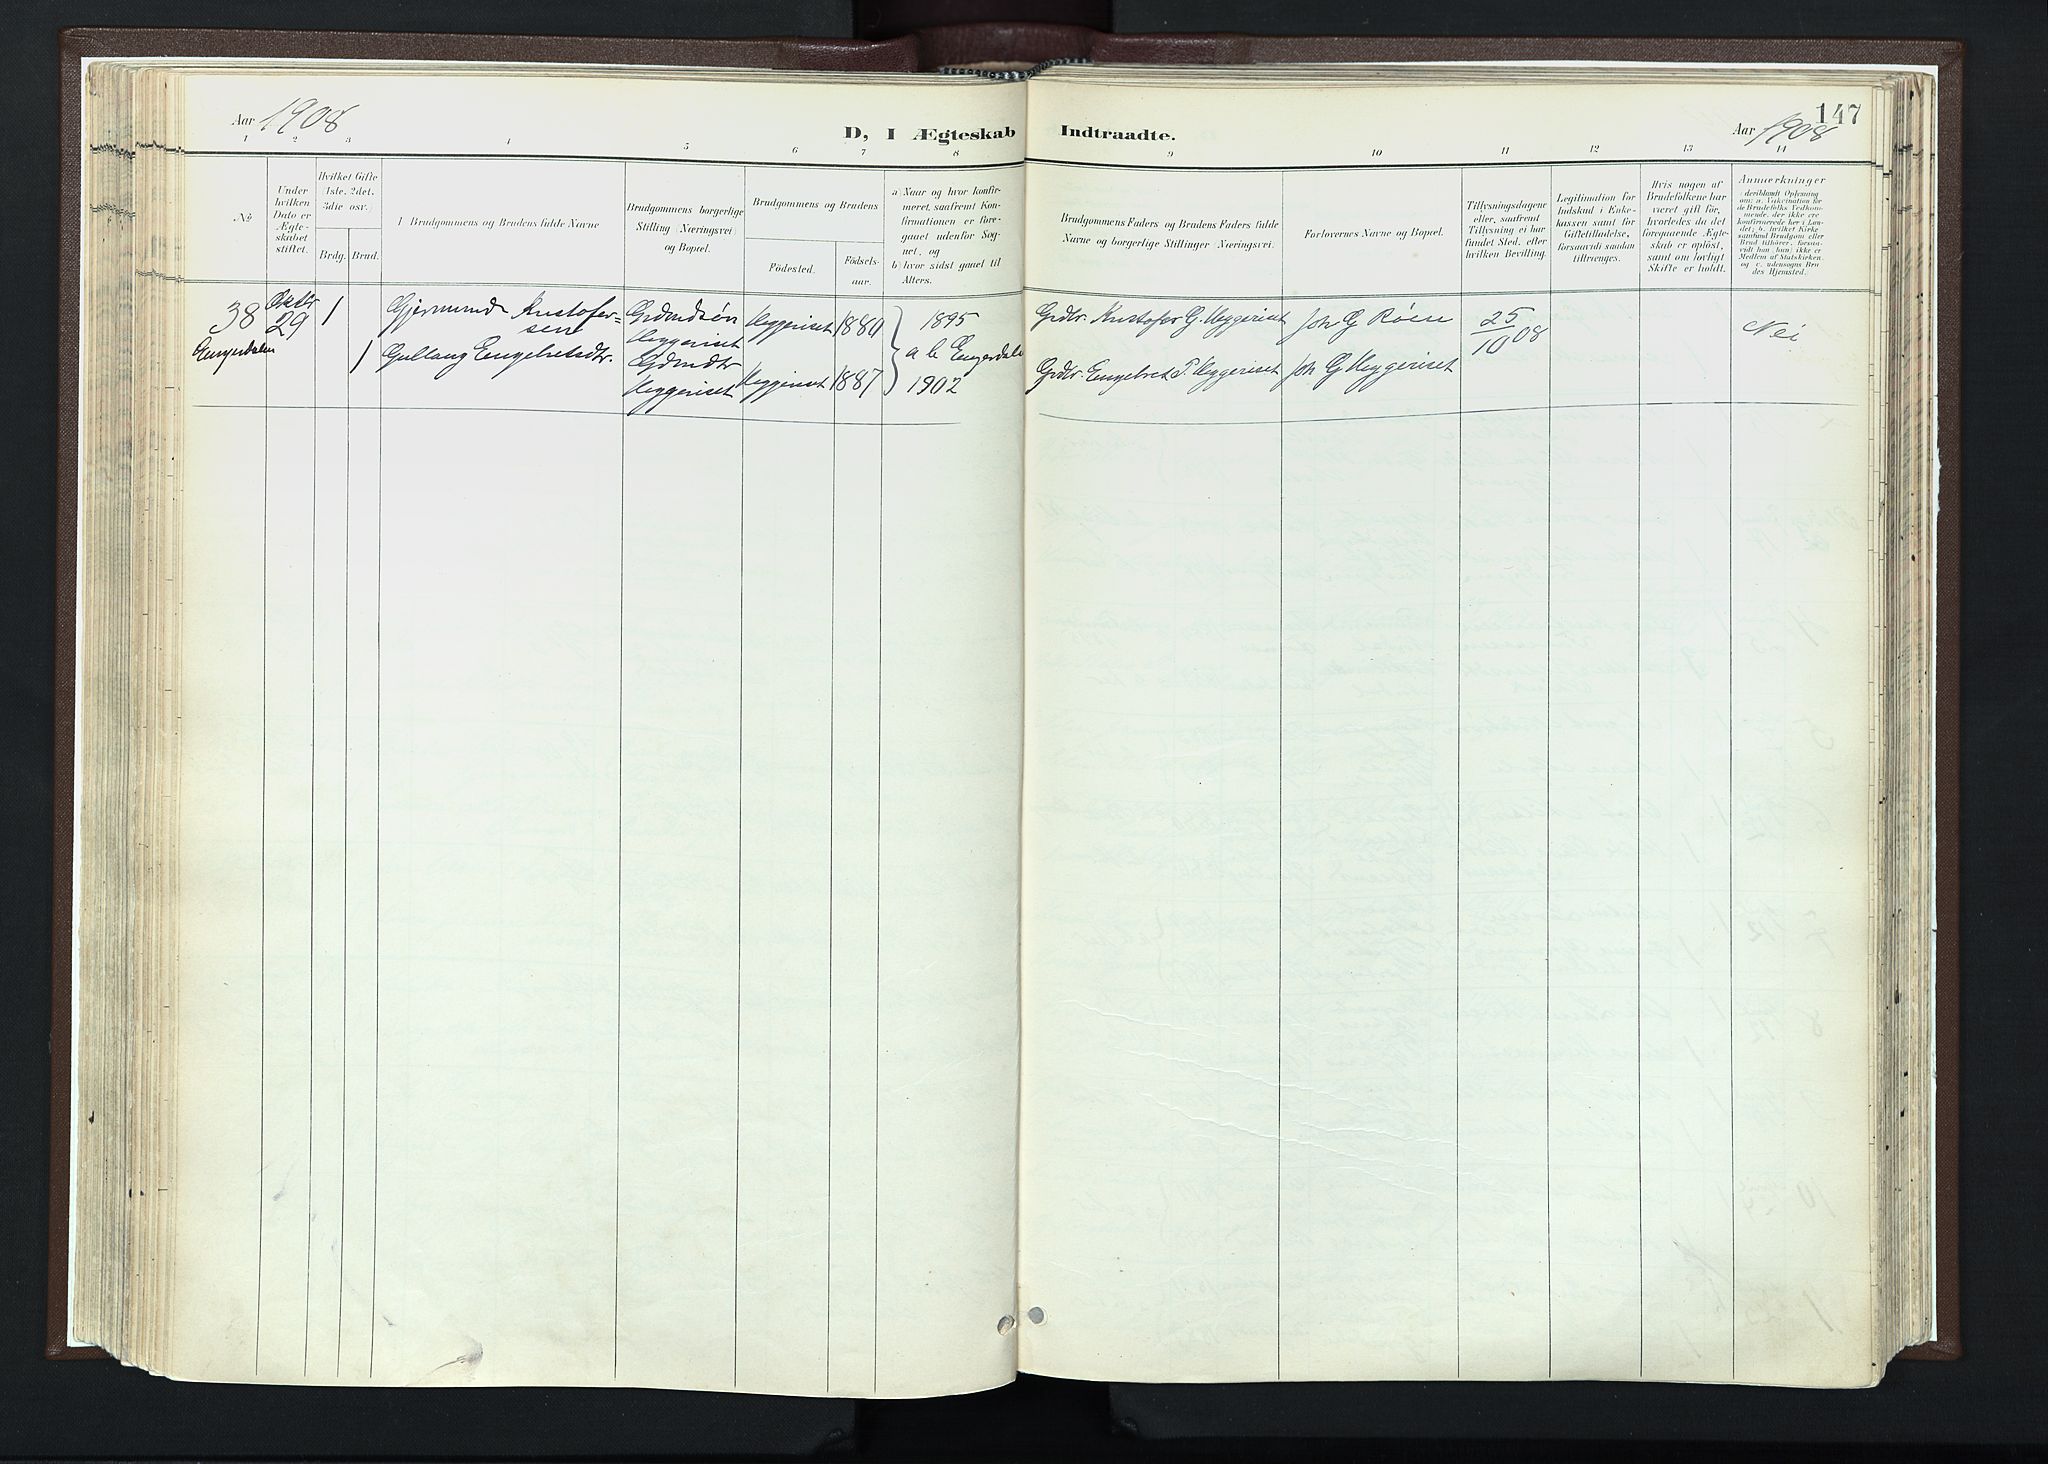 Aar 1908
D, I Ægteskab Indtraadte.
147
Aar 1908
1 2 3 4 5 6 7 8 9 10 11 12 13 14
No
Under hvilken Dato er Ægte-skabet stiftet.
Hvilket Gifte (1ste, 2det, 3die osv.)
Brdg. Brud.
Brudgommens og Brudens fulde Navne
Brudgommens borgerlige Stilling (Næringsvei) og Bopæl.
Brudgommens og Brudens
Födested.
Födsels-aar.
a) Naar og hvor konfir-meret, saafremt Kon-firmationen er fore-gaaet udenfor Sog-net, og
b) hvor sidst gaaet til Alters.
Brudgommens Faders og Brudens Faders fulde Navne og borgerlige Stillinger (Næringsvei.
Forlovernes Navne og Bopæl.
Tillysningsdagene eller, saafremt Tillysning ei har fundet Sted, efter hvilken Bevilling.
Legitimation for Indskud i Enke-kassen samt for Giftetilladelse, forsaavidt saadan tiltrænges.
Hvis nogen af Brudefolkene har været gift för, hvorledes da det foregaaende Ægte-skab er oplöst, samt om lovligt Skifte er holdt.
Anmærkninger
(deriblandt Oplysning om: a. Vakcination for de Brudefolks Vedkom-mende, der ikke ere konfirmerede her i Lan-det; b. hvilket Kirke-samfund Brudgom eller Brud tilhörer, forsaa-vidt han (hun) ikke er Medlem af Statskirken, og c. udensogns Bru-des Hjemsted.
38 Oktbr 29 1 Gjermund Kristofer-sen Grdmdsön Heggeriset Heggeriset 1880 1895 Grdbr. Kristofer G. Heggeriset Joh G Röen 25/10 08 Nei
Engerdalen 1 Gullaug Engebretsdtr. Grdmdtr Heggeriset Heggeriset 1887 a b Engerdalen 1902 Grdbr. Engebret T. Heggeriset Joh G Heggeriset